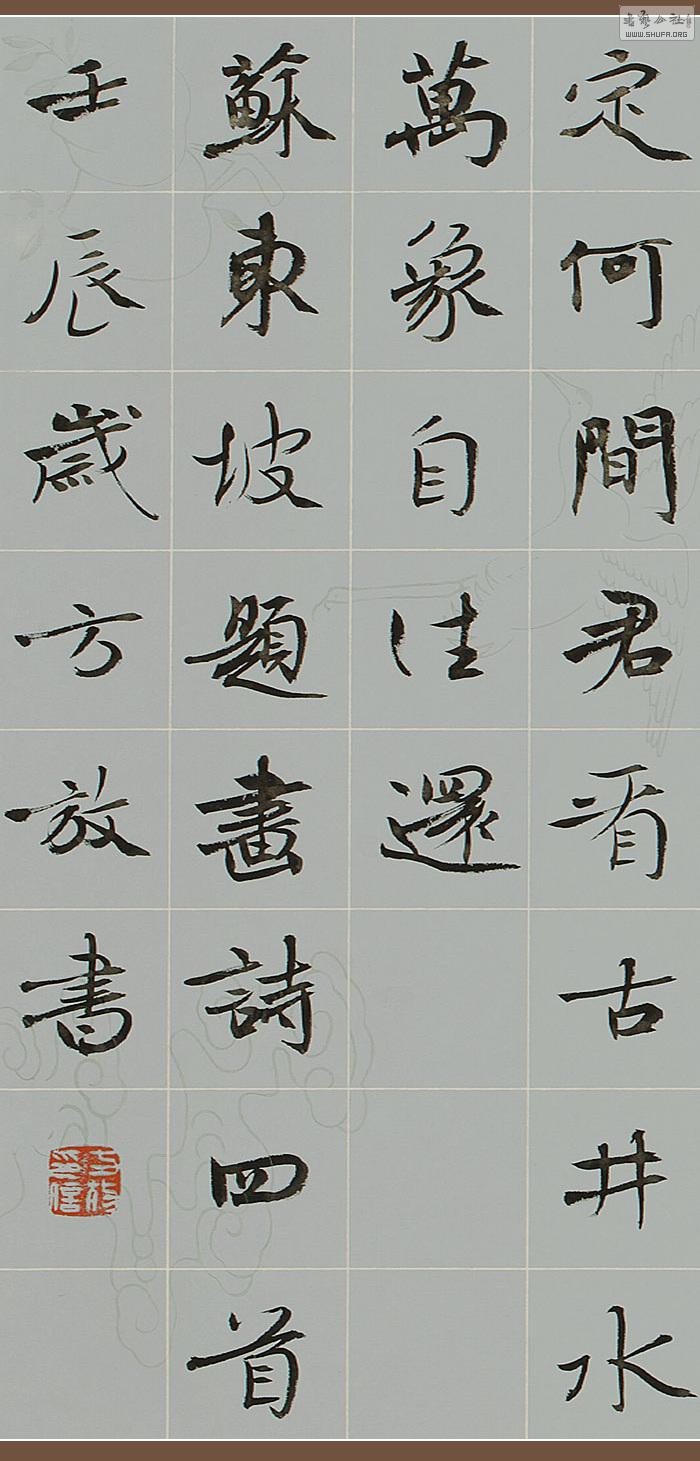 定何間君看古井水
萬象自往還
蘇東坡題畫詩四首
壬辰歲方放書
WWW.SHUFA.ORG